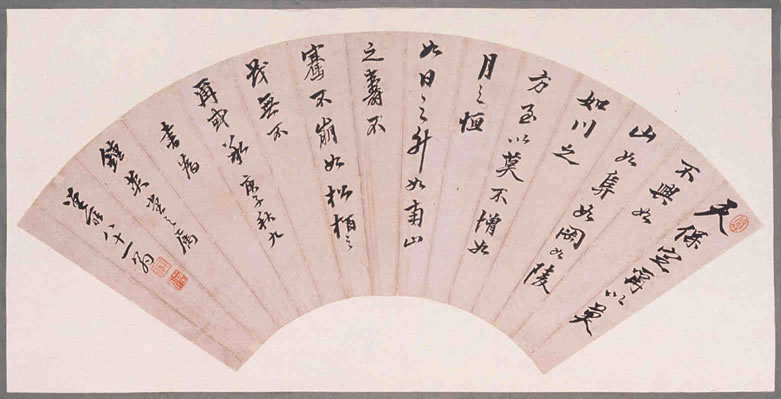 天保定爾以莫
不興如
山如阜如岡如陵
如川之
方至以莫不增如
月之恒
如日之升如南山
之壽不
騫不崩如松柏之
茂無不
爾或承 庚子秋九
書為
鍾英之屬
八十一翁